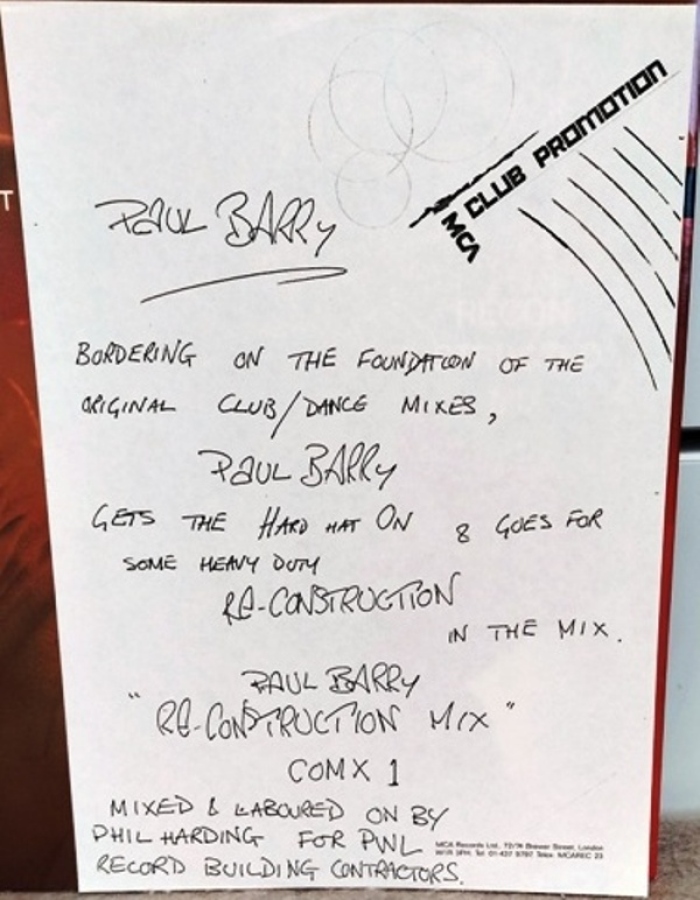 T
MCA CLUB PROMOTION
PAUL BARRY
BORDERING ON THE FOUNDATION OF THE
ORIGINAL CLUB/DANCE MIXES,
PAUL BARRY
GETS THE HARD HAT ON & GOES FOR
SOME HEAVY DUTY
RE-CONSTRUCTION
IN THE MIX.
PAUL BARRY
"RE-CONSTRUCTION MIX"
COMX 1
MIXED & LABOURED ON BY
PHIL HARDING FOR PWL
RECORD BUILDING CONTRACTORS.
MCA Records Ltd., 72/74 Brewer Street, London
Tel: 01-437 9797 Telex: MCAREC 23